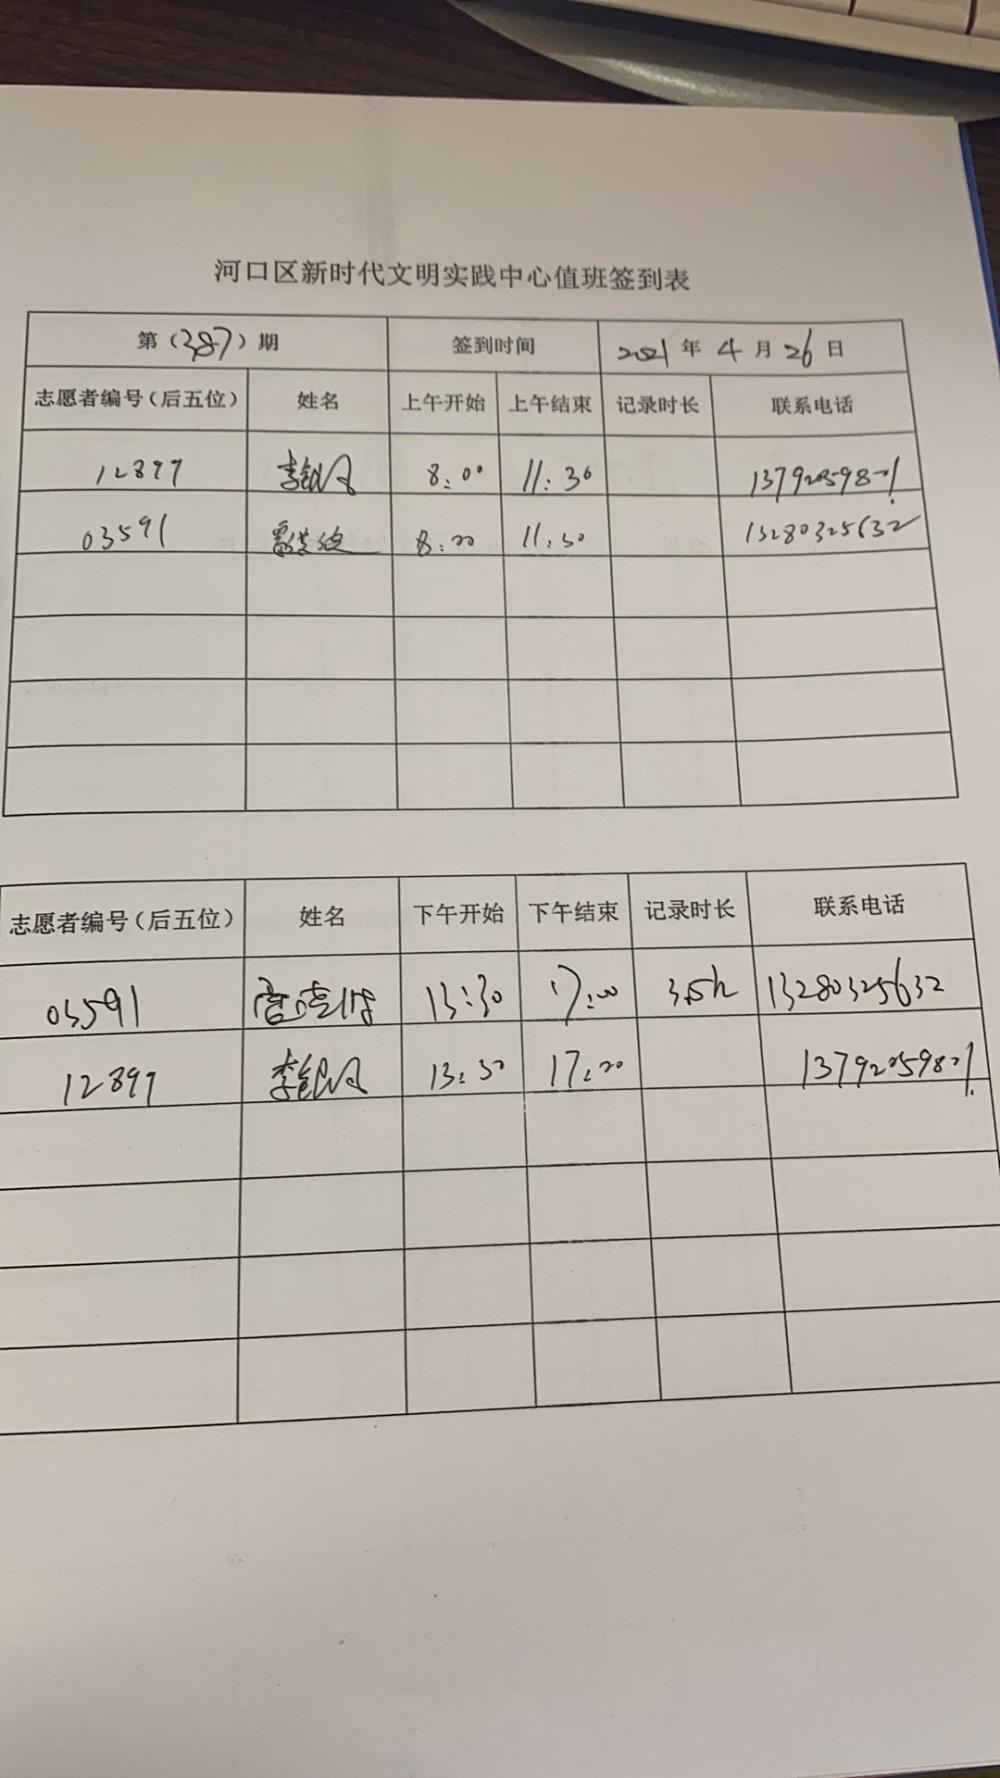 河口区新时代文明实践中心值班签到表
第（387）期 签到时间 2021年4月26日
志愿者编号（后五位） 姓名 上午开始 上午结束 记录时长 联系电话
12897 8:00 11:30
03591 8:00 11:30 13280325632
志愿者编号（后五位） 姓名 下午开始 下午结束 记录时长 联系电话
03591 13:30 17:00 3.5h 13280325632
12897 13:30 17:00